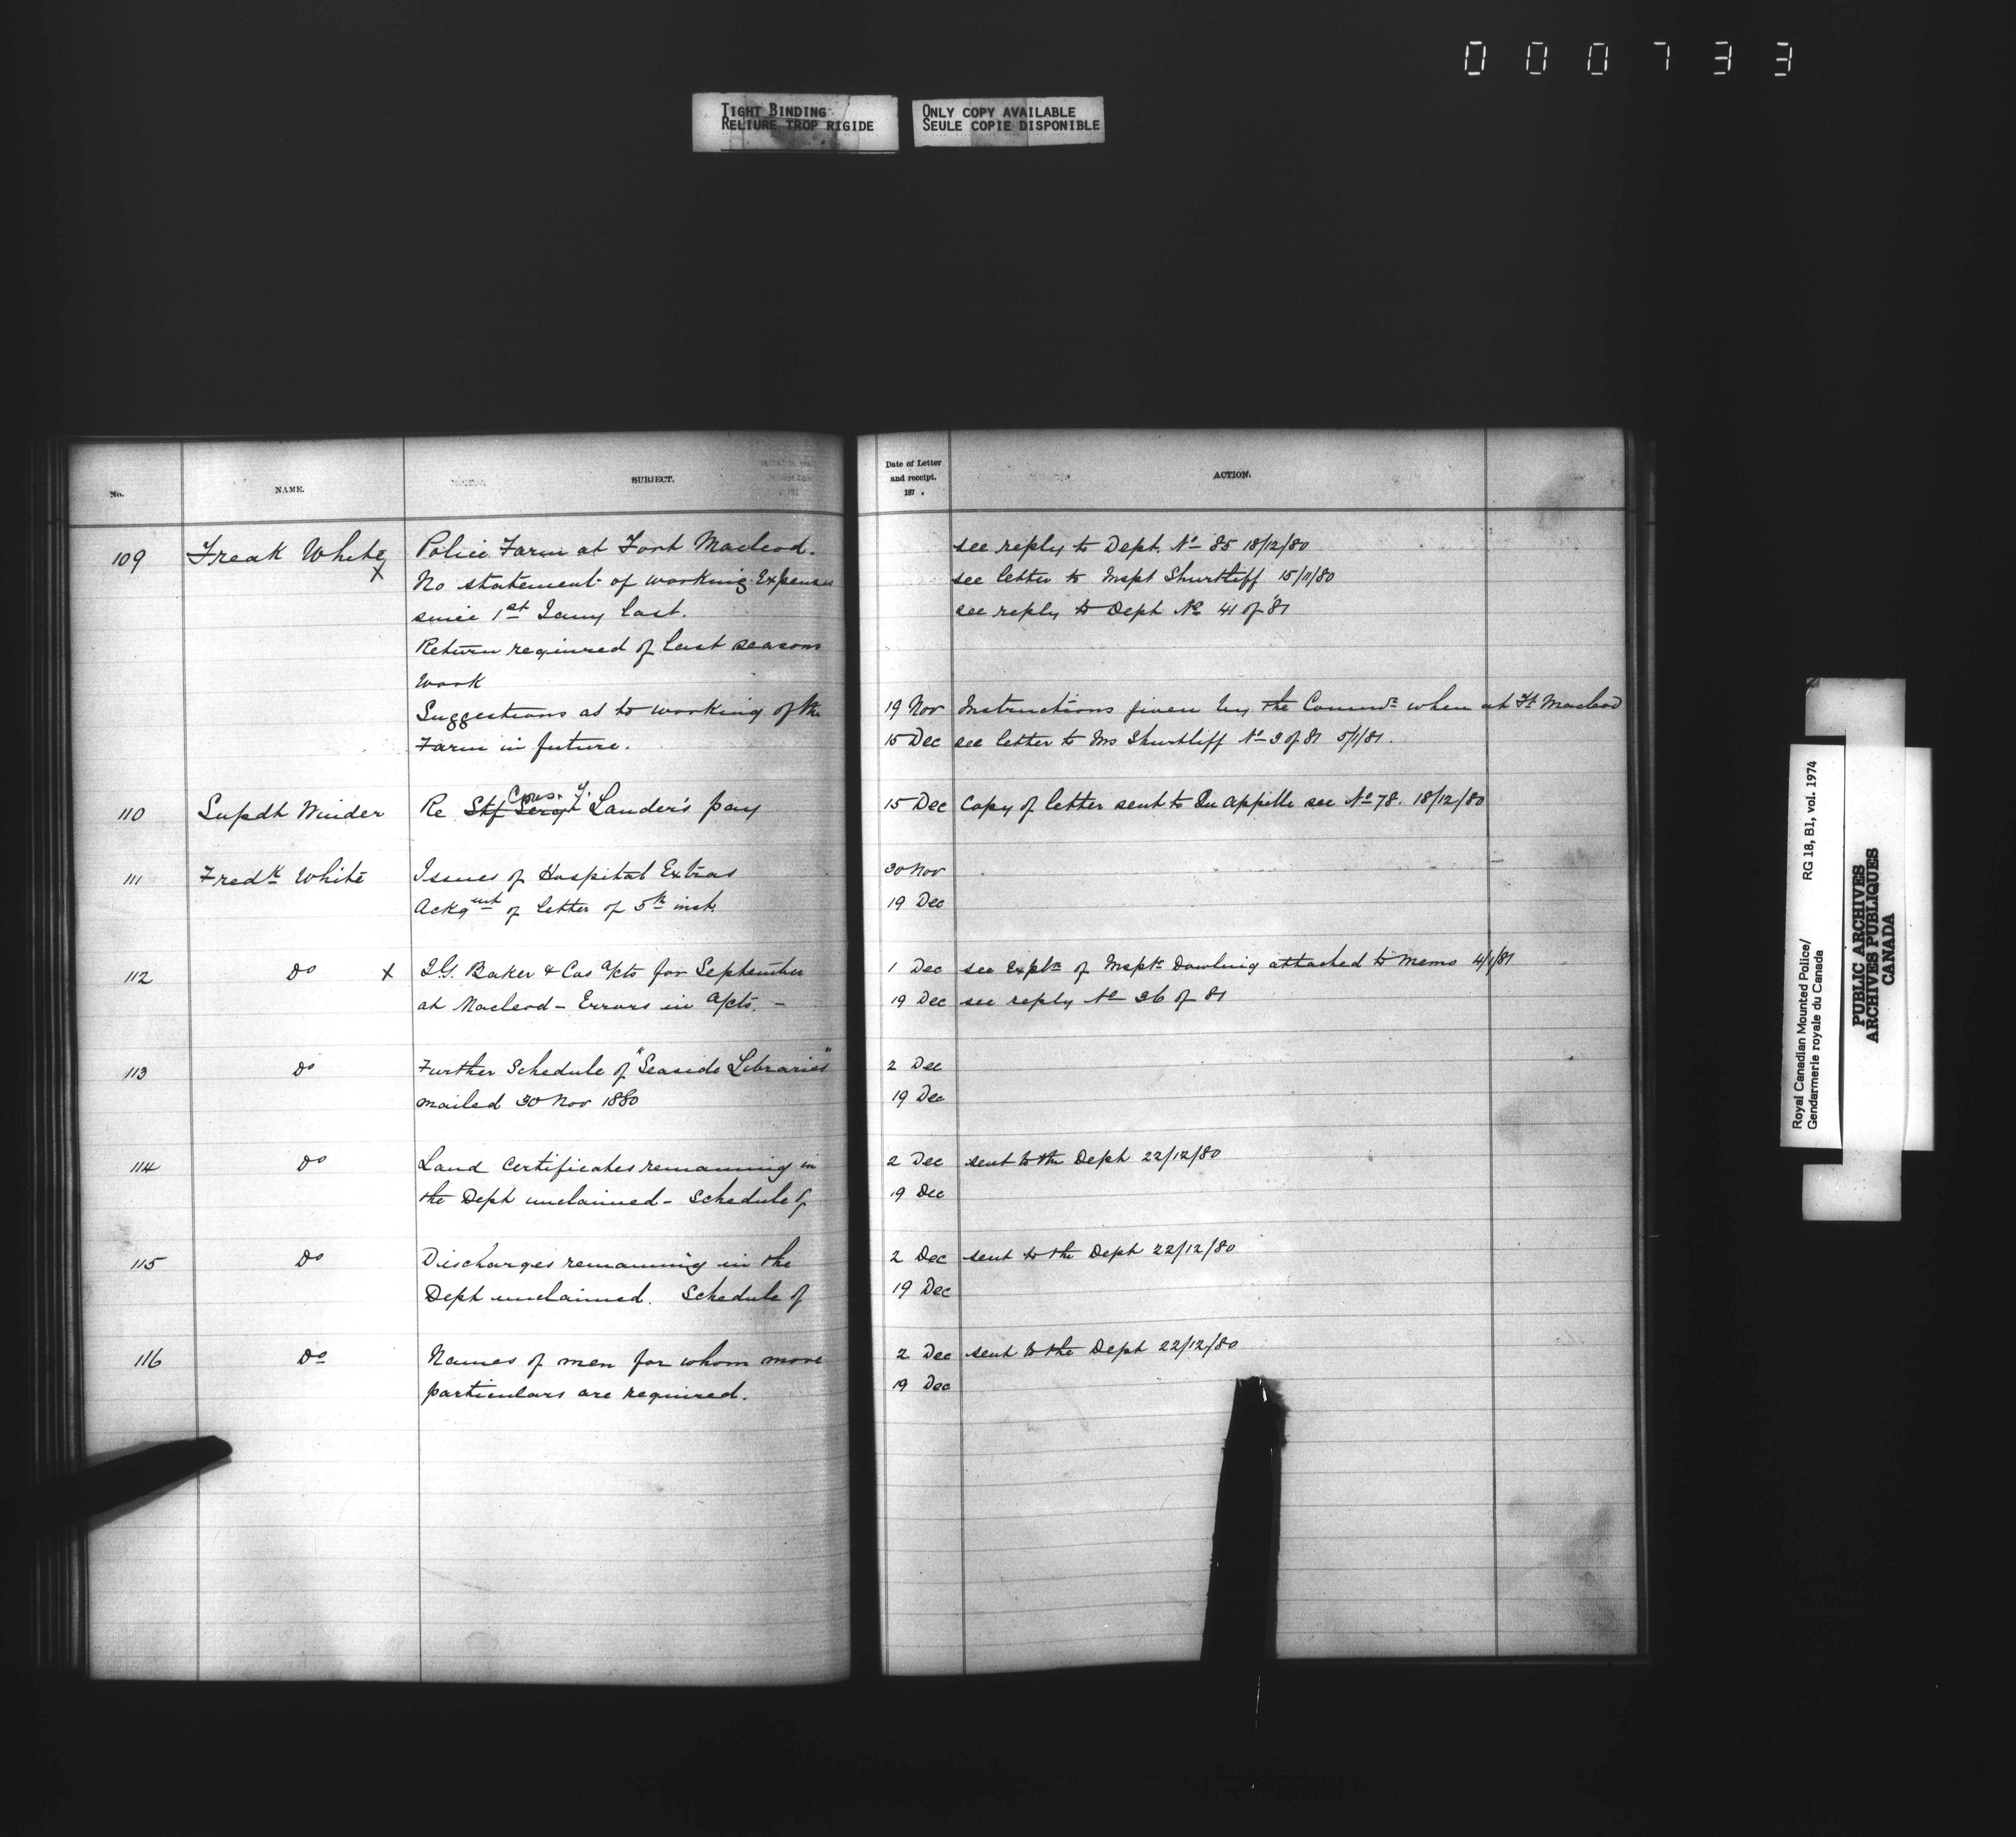 000733
TIGHT BINDING
RELIURE TROP RIGIDE
ONLY COPY AVAILABLE
SEULE COPIE DISPONIBLE
No.
NAME.
SUBJECT.
109 Freak White x
Police Farm at Fort Macleod.
No statement of working Expenses
since 1st Jany last.
Return required of last seasons
work
Suggestions as to working of the
Farm in future.
110 Supdt Winder Re Stf Sergt Cons. F. Lander's pay
111 Fredk White Issues of Hospital Extras
Ackgmt of letter of 5th inst.
112 Do x I.G. Baker & Cos a/cts for September
at Macleod - Errors in a/cts. -
113 Do Further Schedule of "Seaside Libraries"
mailed 30 Nov 1880
114 Do Land Certificates remaining in
the Dept unclaimed - Schedule of
115 Do Discharges remaining in the
Dept unclaimed. Schedule of
116 Do Names of men for whom more
particulars are required.
Date of Letter
and receipt.
187 .
ACTION.
see reply to Dept. No 85 18/12/80
see letter to Inspt Shurtliff 15/11/80
see reply to Dept No 41 of 81
19 Nov Instructions given by the Commr when at Ft Macleod
15 Dec see letter to Ins Shurtliff No 3 of 81 5/1/81.
15 Dec Copy of letter sent to Qu'appelle see No 78. 18/12/80
30 Nov
19 Dec
1 Dec see Expln of Inspr Dowling attached to memo 4/1/81
19 Dec see reply No 36 of 81
2 Dec
19 Dec
2 Dec sent to the Dept 22/12/80
19 Dec
2 Dec sent to the Dept 22/12/80
19 Dec
2 Dec sent to the Dept 22/12/80
19 Dec
Royal Canadian Mounted Police/ RG 18, B1, vol. 1974
Gendarmerie royale du Canada
PUBLIC ARCHIVES
ARCHIVES PUBLIQUES
CANADA